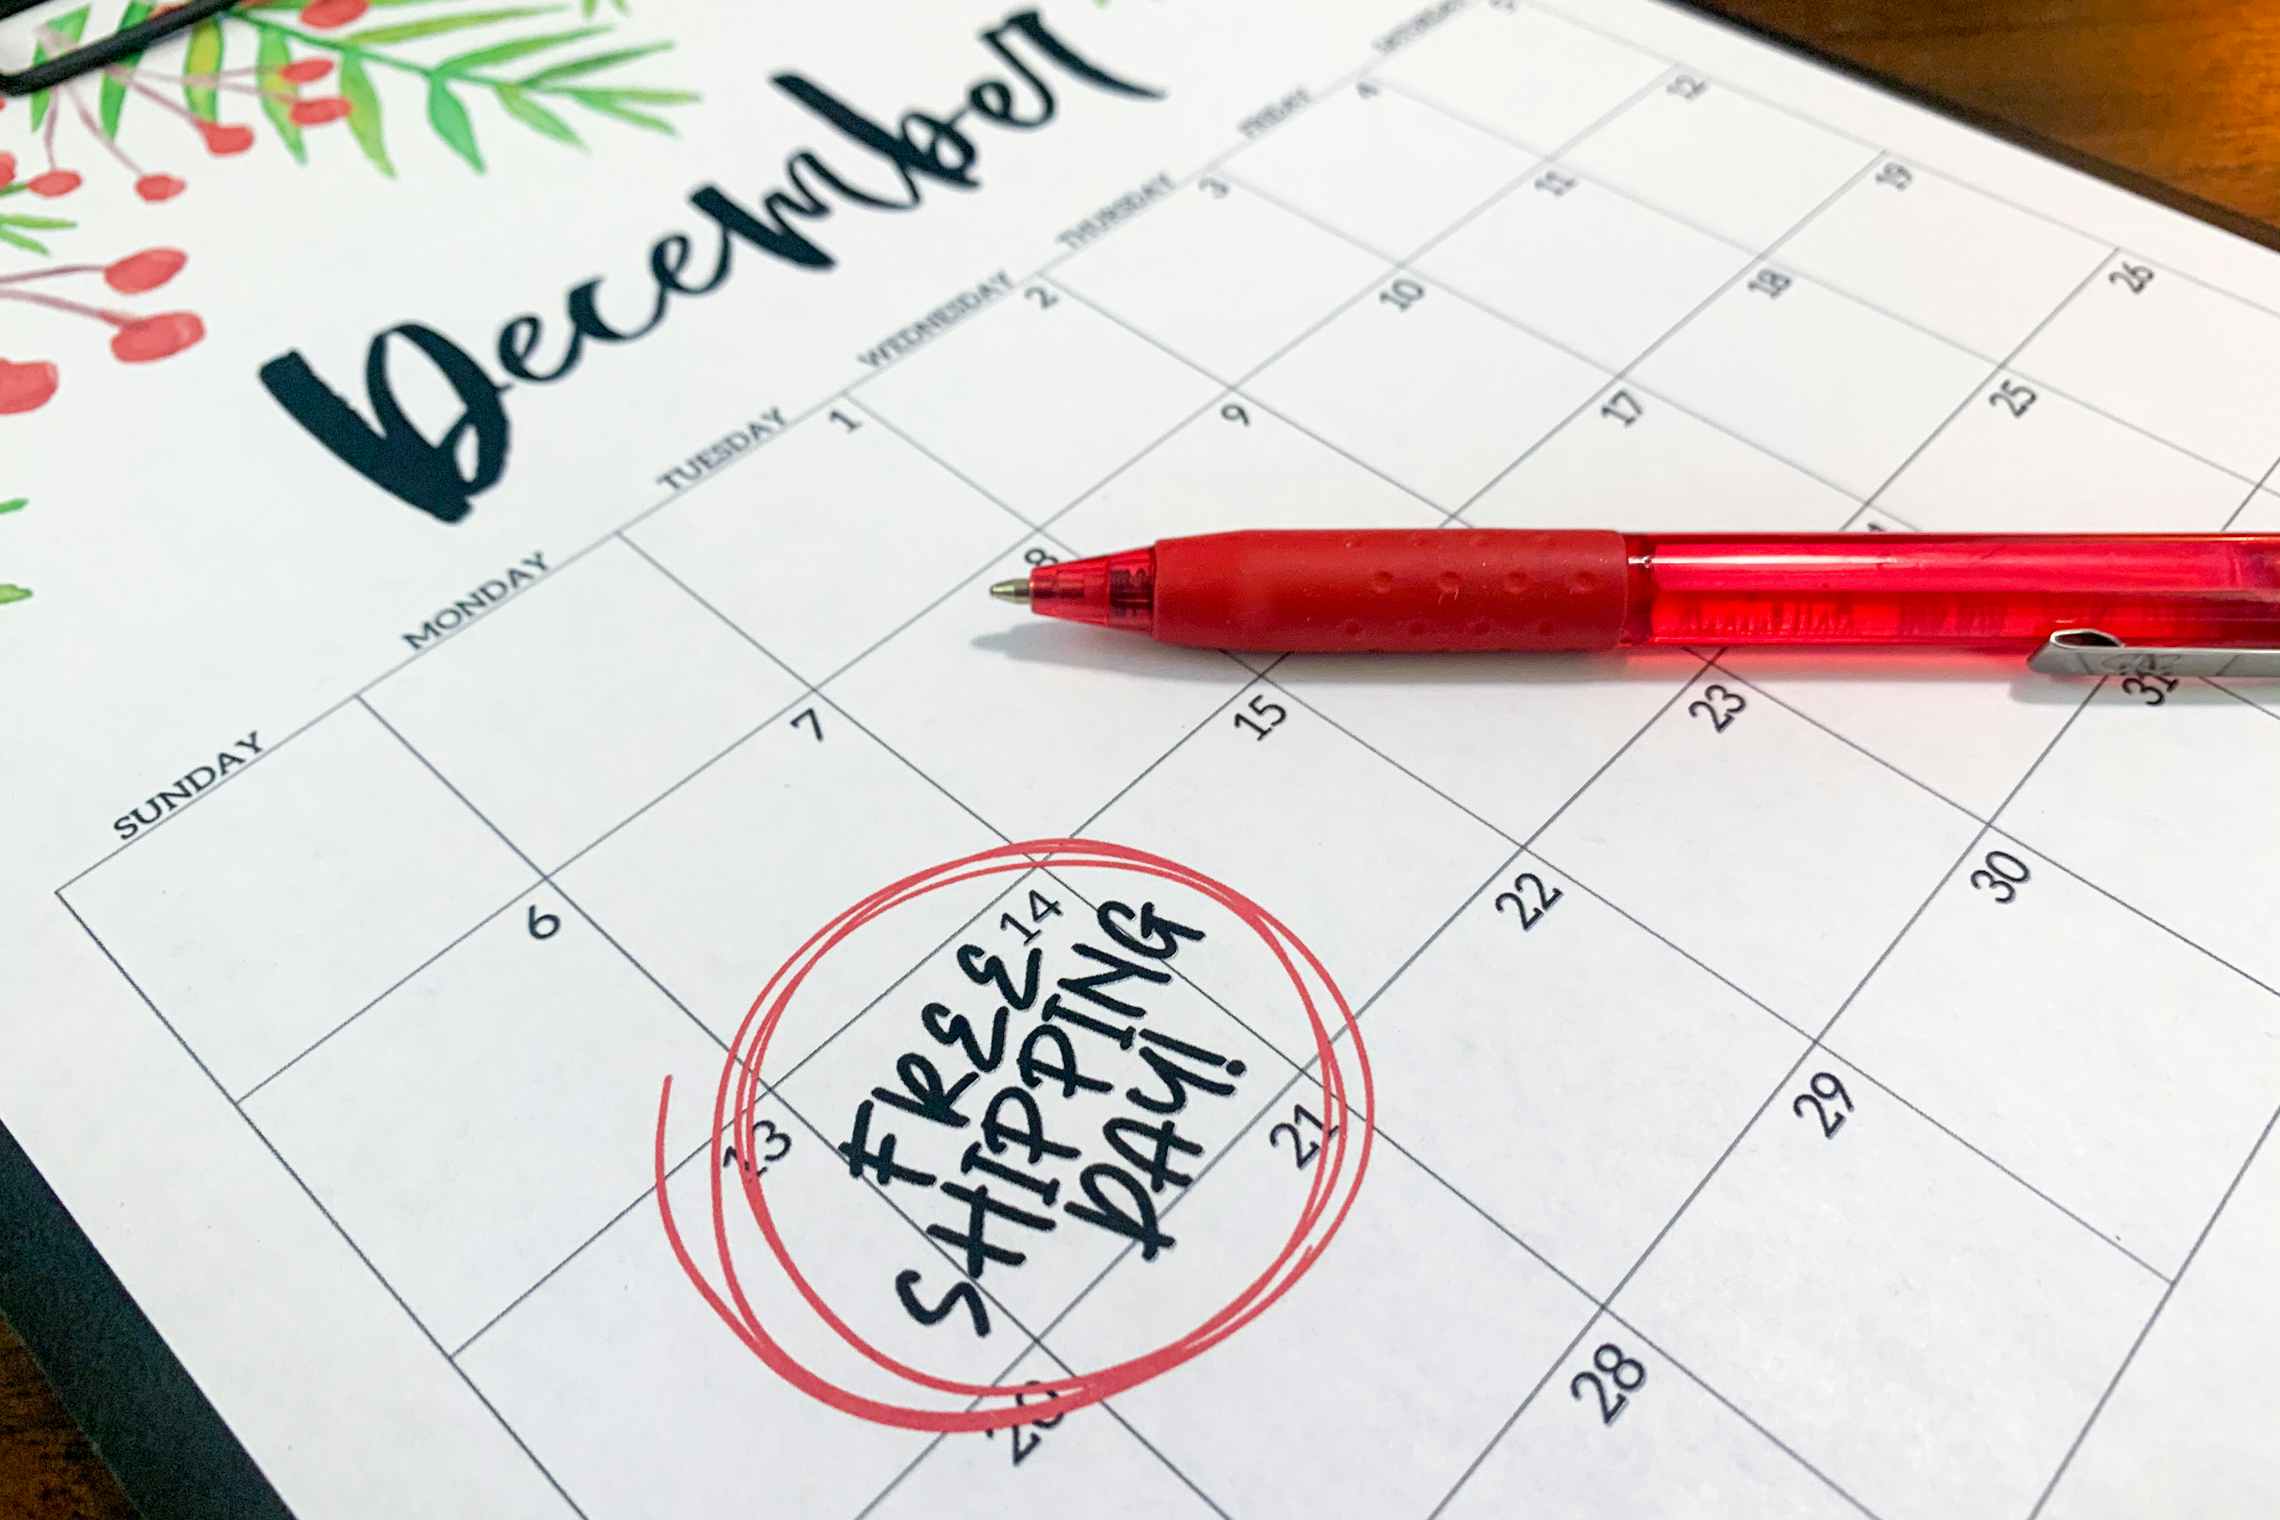 December
SUNDAY MONDAY TUESDAY WEDNESDAY THURSDAY FRIDAY SATURDAY
1 2 3 4
6 7 8 9 10 11 12
13 14 15 17 18 19
FREE
SHIPPING
DAY!
20 21 22 23 25 26
28 29 30 31